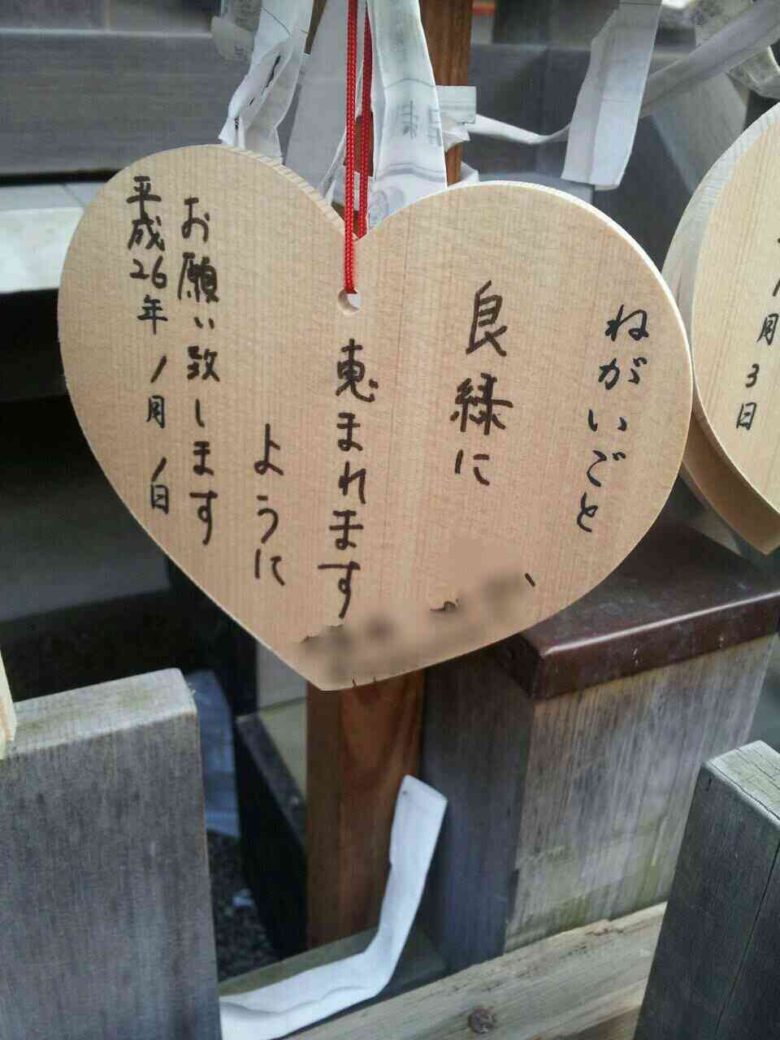 ねがいごと
良緑に
恵まれます
ように
お願い致します
平成26年 1月 1日
1月3日